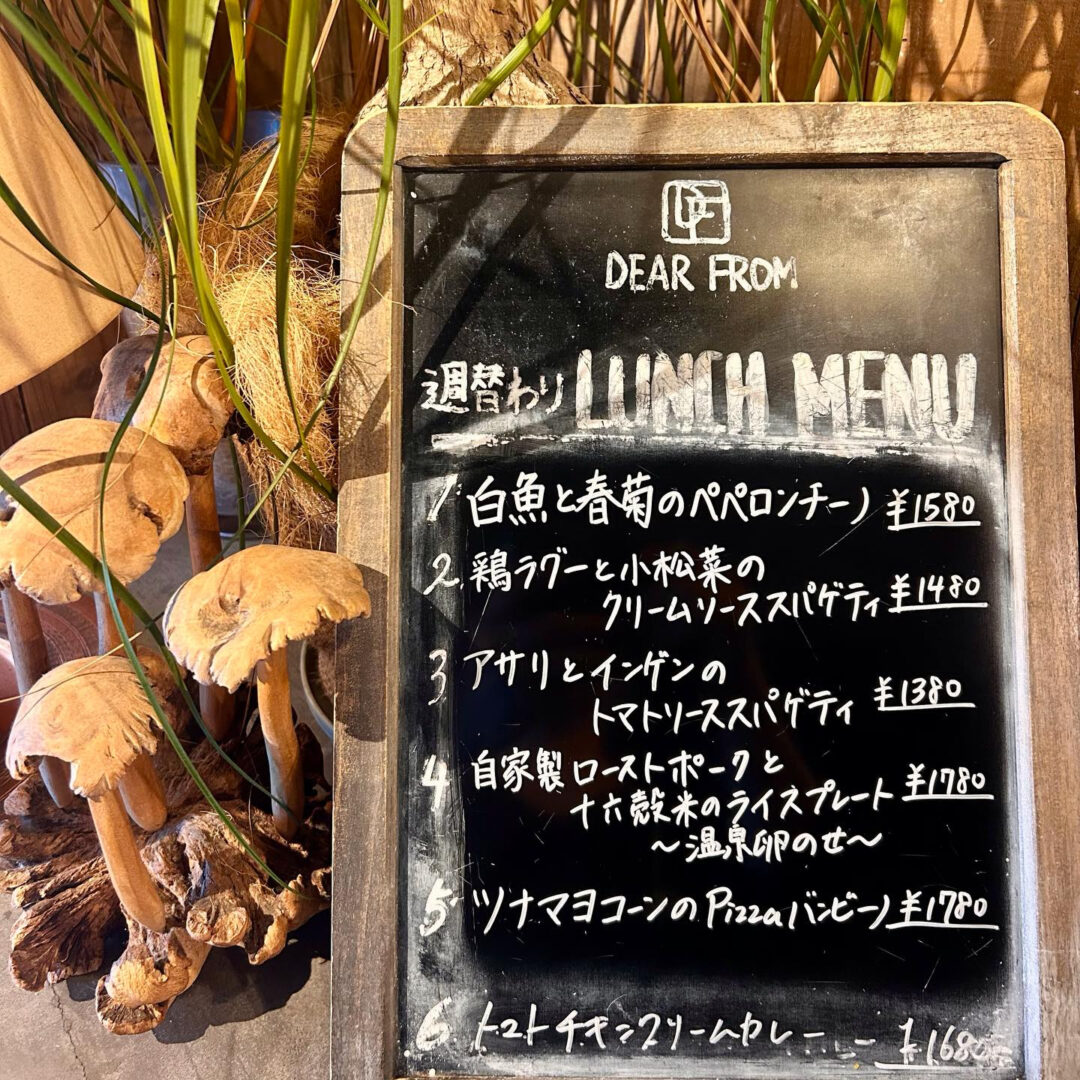 DF
DEAR FROM
週替わり LUNCH MENU
1 白魚と春菊のペペロンチーノ ¥1580
2. 鶏ラグーと小松菜の
クリームソーススパゲティ ¥1480
3 アサリとインゲンの
トマトソーススパゲティ ¥1380
4 自家製ローストポークと
十六穀米のライスプレート ¥1780
〜温泉卵のせ〜
5 ツナマヨコーンのPizzaバンビーノ ¥1780
6 トマトチキンクリームカレー ¥1680